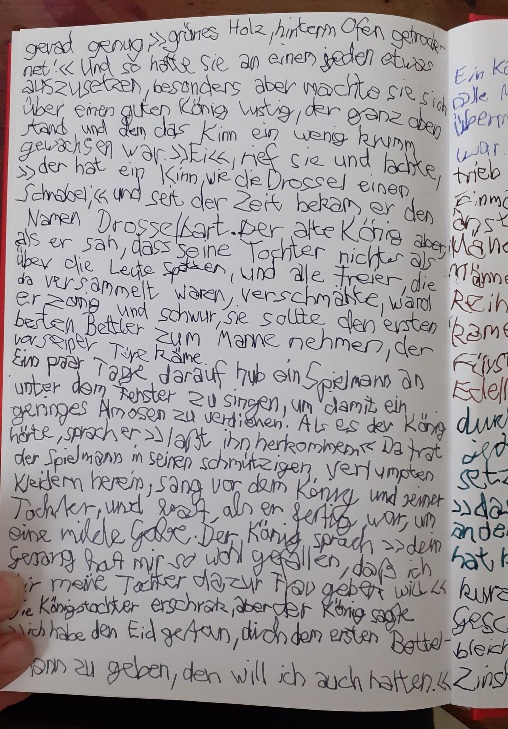 gerad genug, »grünes Holz, hinterm Ofen getrock-
net!« Und so hatte sie an einen jeden etwas
auszusetzen, besonders aber machte sie sich
über einen guten König lustig, der ganz oben
stand und dem das Kinn ein wenig krumm
gewachsen war. »Ei«, rief sie und lachte,
»der hat ein Kinn, wie die Drossel einen
Schnabel;« und seit der Zeit bekam er den
Namen Drosselbart. Der alte König aber,
als er sah, dass seine Tochter nichts als
über die Leute spotten, und alle freier, die
da versammelt waren, verschmähte, ward
er zornig und schwur, sie sollte den ersten
besten Bettler zum Manne nehmen, der
vor seiner Türe käme.
Ein paar Tage darauf hub ein Spielmann an
unter dem Fenster zu singen, um damit ein
geringes Almosen zu verdienen. Als es der König
hörte, sprach er »laßt ihn herkommen« Da trat
der Spielmann in seinen schmutzigen verlumpten
Kleidern herein, sang vor dem König und seiner
Tochter, und bat, als er fertig war, um
eine milde Gabe. Der König sprach »dein
Gesang hat mir so wohl gefallen, daß ich
dir meine Tochter da zur Frau geben will«
Die Königstochter erschrak, aber der König sagte
»ich habe den Eid getan, dich dem ersten Bettel-
mann zu geben, den will ich auch halten.«
Ein Kö
alle
überm
war.
trieb
Einma
Männe
Reih
kame
Fürst
Edell
durc
setz
»das
ande
hat
kurz
Gesc
bleich
Zins